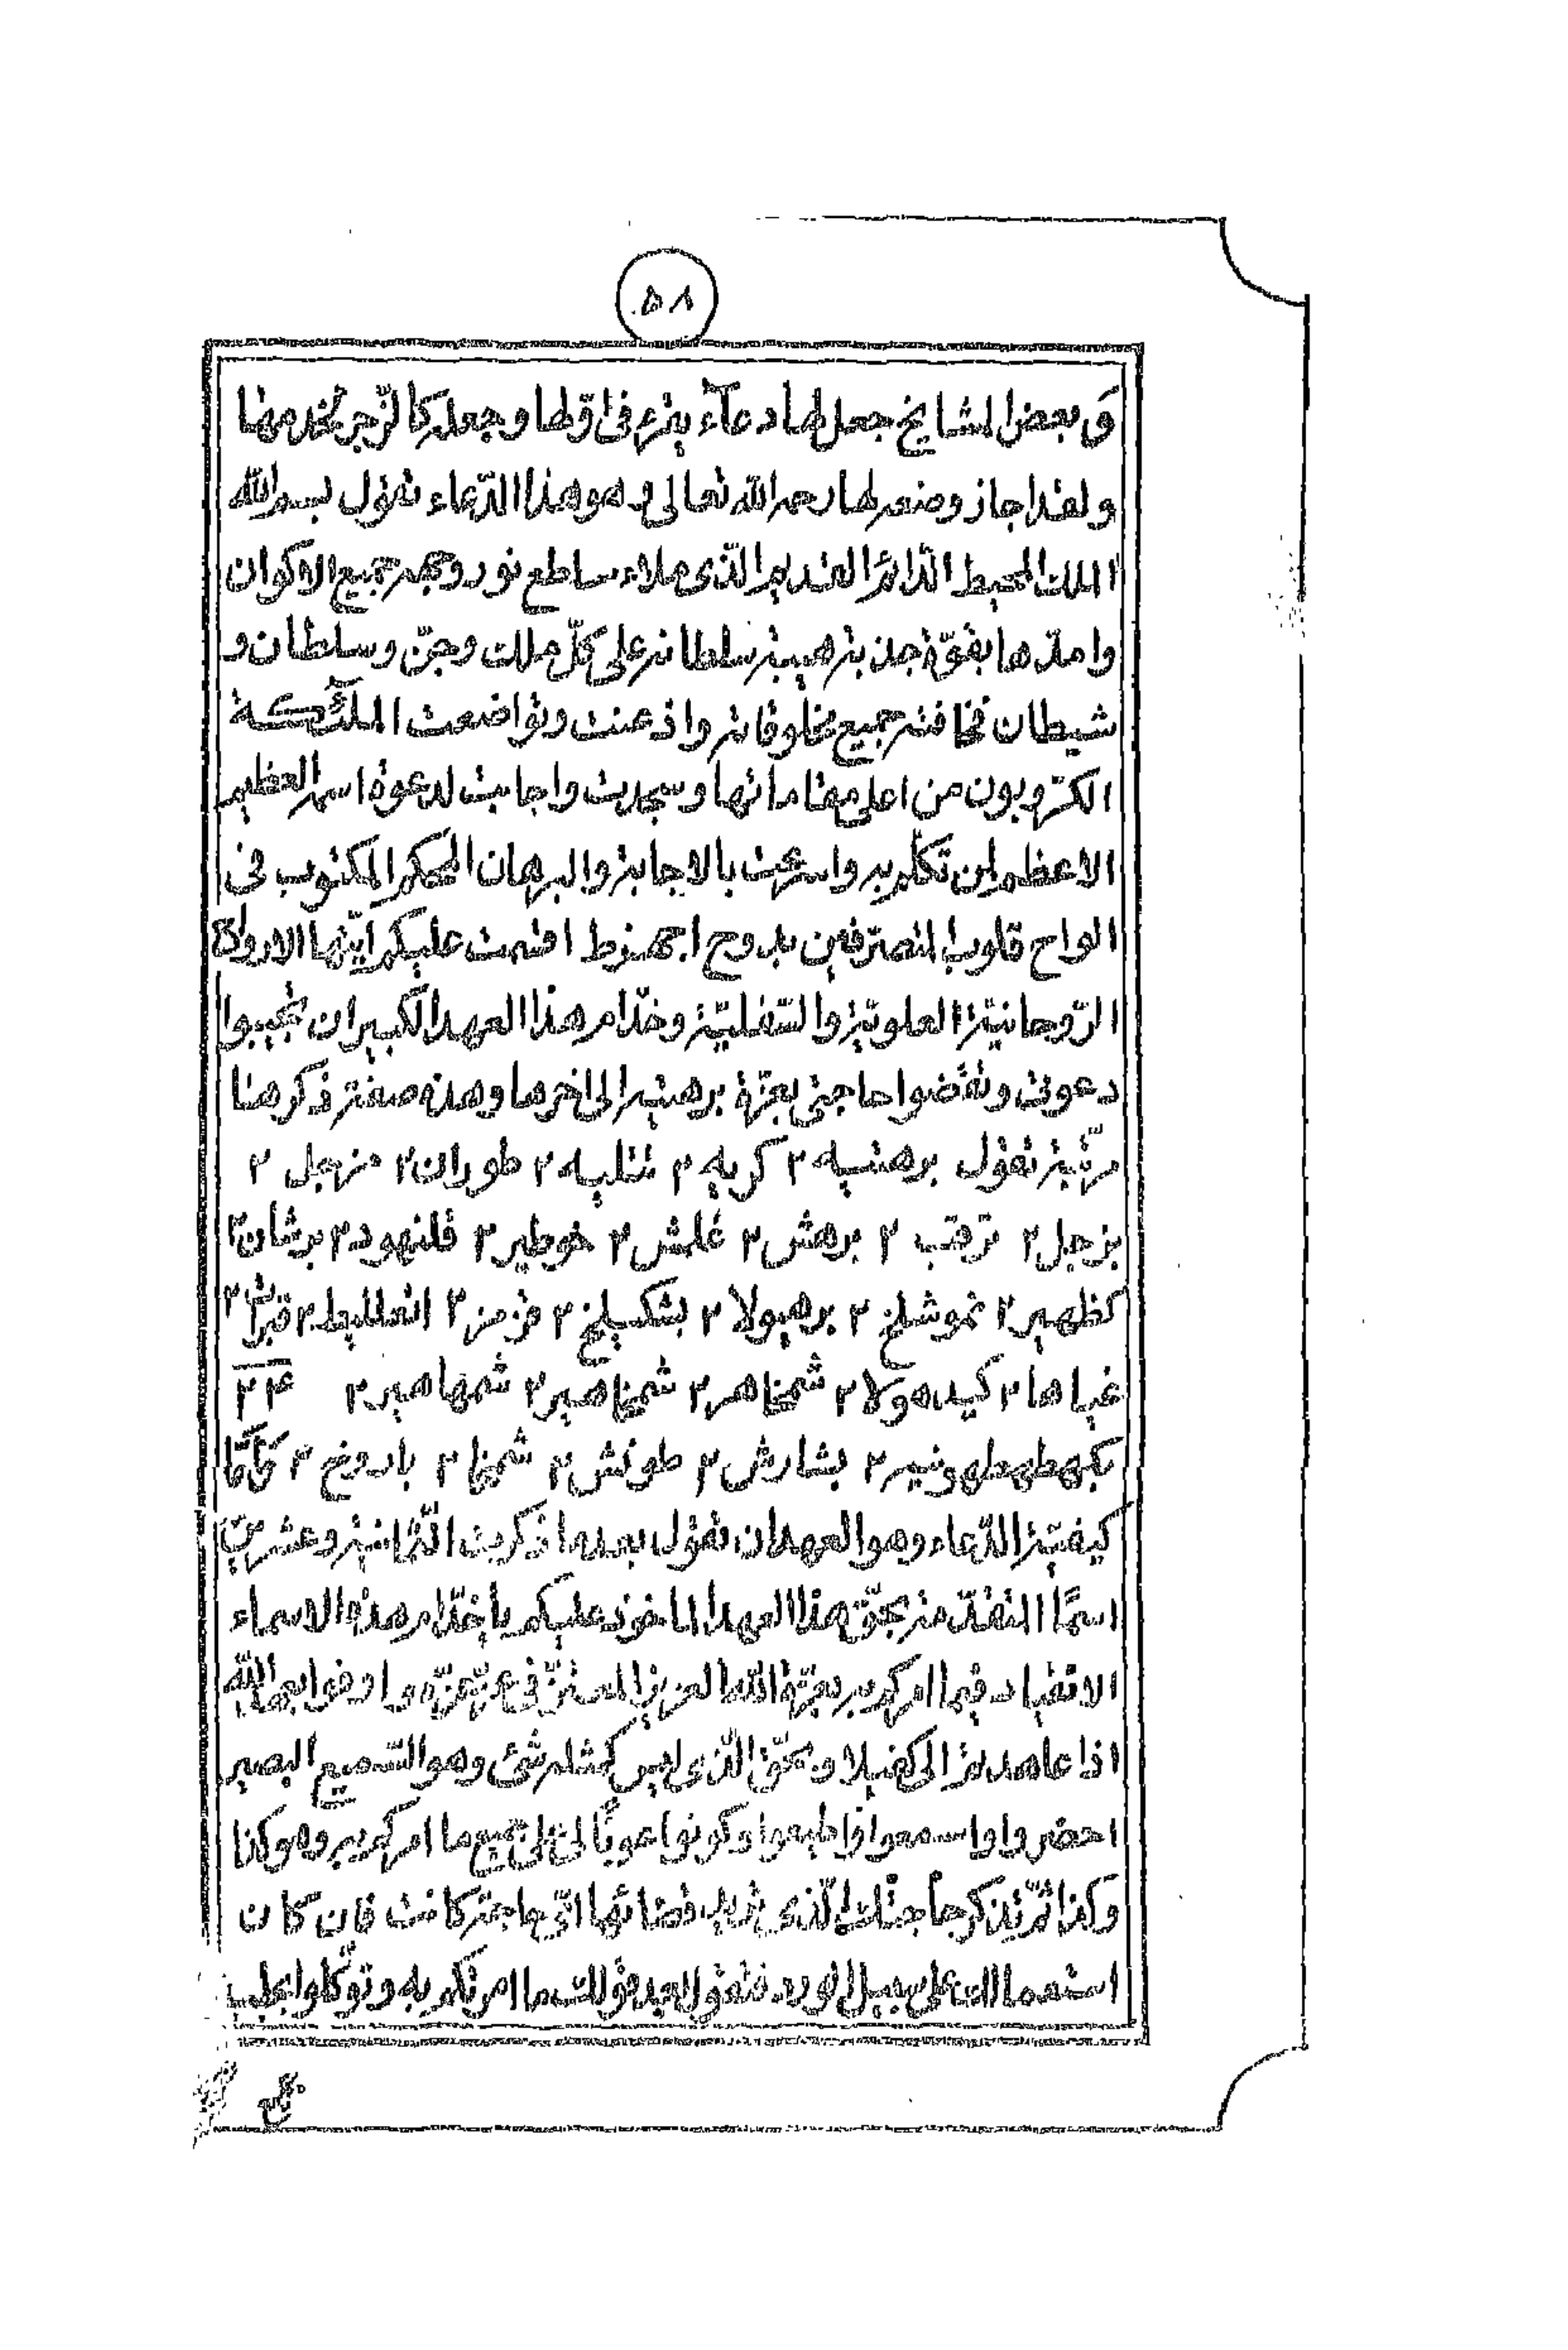 ۵۸
وَ بعض المشايخ جعل لها دعآء يقرء فى اوّلها وجعله كالزّجر لخدمها
ولقد اجاز وضعه لها رحمه الله تعالى وهو هذا الدّعاء تقول بسم الله
الملك المحيط الدّائم القديم الذّى ملاء ساطع نور وجهه جميع الاكوان
وامدّها بقوّة جذبة هيبة سلطانه على كلّ ملك وجنّ وسلطان و
شيطان فخافته جميع مخلوقاته واذعنت وتواضعت الملٰئكة
الكرّوبيون من اعلى مقاماتها وسجدت واجابت لدعوة اسمه العظيم
الاعظم لمن تكلّم به واسرعت بالاجابة والبرهان المحكم المكتوب فى
الواح قلوب المتصرّفين بدوح اجهزط اقسمت عليكم ايّتها الارواح
الرّوحانيّة العلويّة والسّفليّة وخدّام هذا العهد الكبير ان تجيبوا
دعوتى وتقضوا حاجتى بعزّة برهتيه الى اخرها وهذه صفة ذكرها
مرتّبة تقول برهتيه ٢ كريه ٢ تتليه ٢ طوران ٢ مزجل ٢
بزجل ٢ ترقب ٢ برهش ٢ غلمش ٢ خوطير ٢ قلنهود ٢ برشان ٢
كظهير ٢ نموشلخ ٢ برهيولا ٢ بشكيلخ ٢ قزمز ٢ انغلليط ٢ قبرات ٢
غياها ٢ كيدهولا ٢ شمخاهر ٢ شمخاهير ٢ شمهاهير ٢ ٢۴
بكهطهطهونيه ٢ بشارش ٢ طونش ٢ شمخا ٢ باروخ ٢
كيفيّة الدّعاء وهو العهد ان تقول بعد ما ذكرت الثّمانية وعشرين
اسمًا المتقدّمة بحقّ هذا العهد الماخوذ عليكم يا خدّام هذه الاسماء
الانقياد فيما امركم به بعزّة الله العزيز المعتزّ فى عزّ عزّه واوفوا بعهد الله
اذا عاهدتم الى كفيلا وبحقّ الذّى ليس كمثله شئ وهو السّميع البصير
احضروا واسمعوا واطيعوا وكونوا عونًا لى على جميع ما امركم به وهو كذا
وكذا ثمّ تذكر حاجتك الّذى تريد قضائها اىّ حاجة كانت فان كان
استعمالك على سبيل الورد فتقول بعد قولك ما امرتكم به وتوكّلوا بجلب